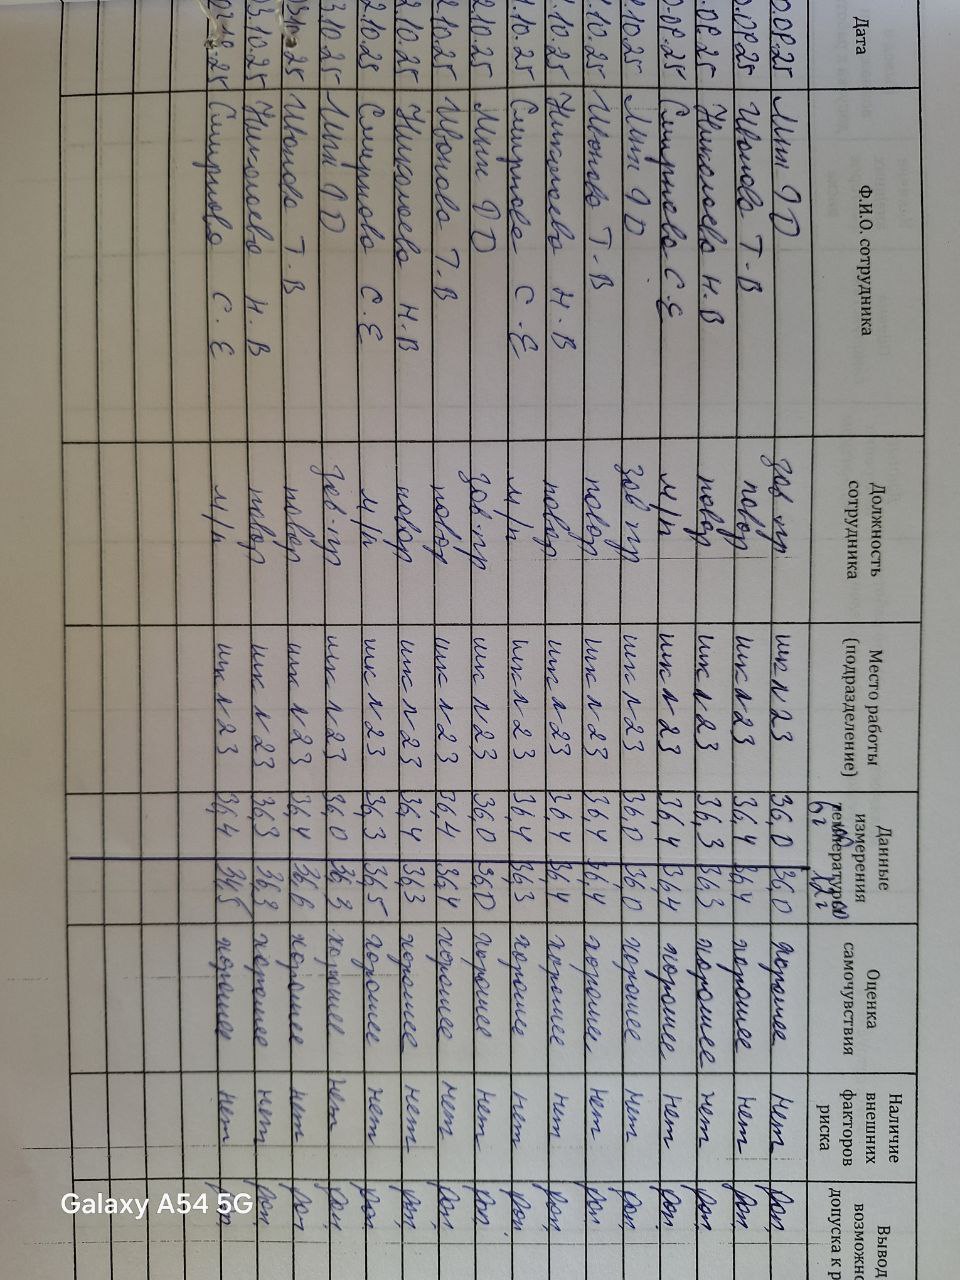 Дата Ф.И.О. сотрудника Должность сотрудника Место работы (подразделение) Данные измерения температуры Оценка самочувствия Наличие внешних факторов риска Вывод возможно допуска к р
0.09.25 Мин ЗД зав пр шк N23 36,0 36,0 хорошее нет доп.
0.09.25 Иванова Т.В повар шк N23 36,4 36,4 хорошее нет доп
0.09.25 Николаева Н.В повар шк N23 36,3 36,3 хорошее нет доп,
0.09.25 Смирнова С.Е м/п шк N23 36,4 36,4 хорошее нет доп.
1.10.25 Мин ЗД зав пр шк N23 36,0 36,0 хорошее нет доп.
1.10.25 Иванова Т.В повар шк N23 36,4 36,4 хорошее нет доп.
1.10.25 Николаева Н.В повар шк N23 36,4 36,4 хорошее нет доп,
1.10.25 Смирнова С.Е м/п шк N23 36,4 36,3 хорошее нет доп.
2.10.25 Мин ЗД зав.пр шк N23 36,0 36,0 хорошее нет доп.
2.10.25 Иванова Т.В повар шк N23 36,4 36,4 хорошее нет доп,
2.10.25 Николаева Н.В повар шк N23 36,4 36,3 хорошее нет доп,
2.10.25 Смирнова С.Е м/п шк N23 36,3 36,5 хорошее нет доп.
3.10.25 Мин ЗД зав.пр шк N23 36,0 36,3 хорошее нет доп,
25 Иванова Т.В повар шк N23 36,4 36,6 хорошее нет доп
03.10.25 Николаева Н.В повар шк N23 36,3 36,3 хорошее нет доп
25 Смирнова С.Е м/п шк N23 36,4 хорошее нет доп,
Galaxy A54 5G